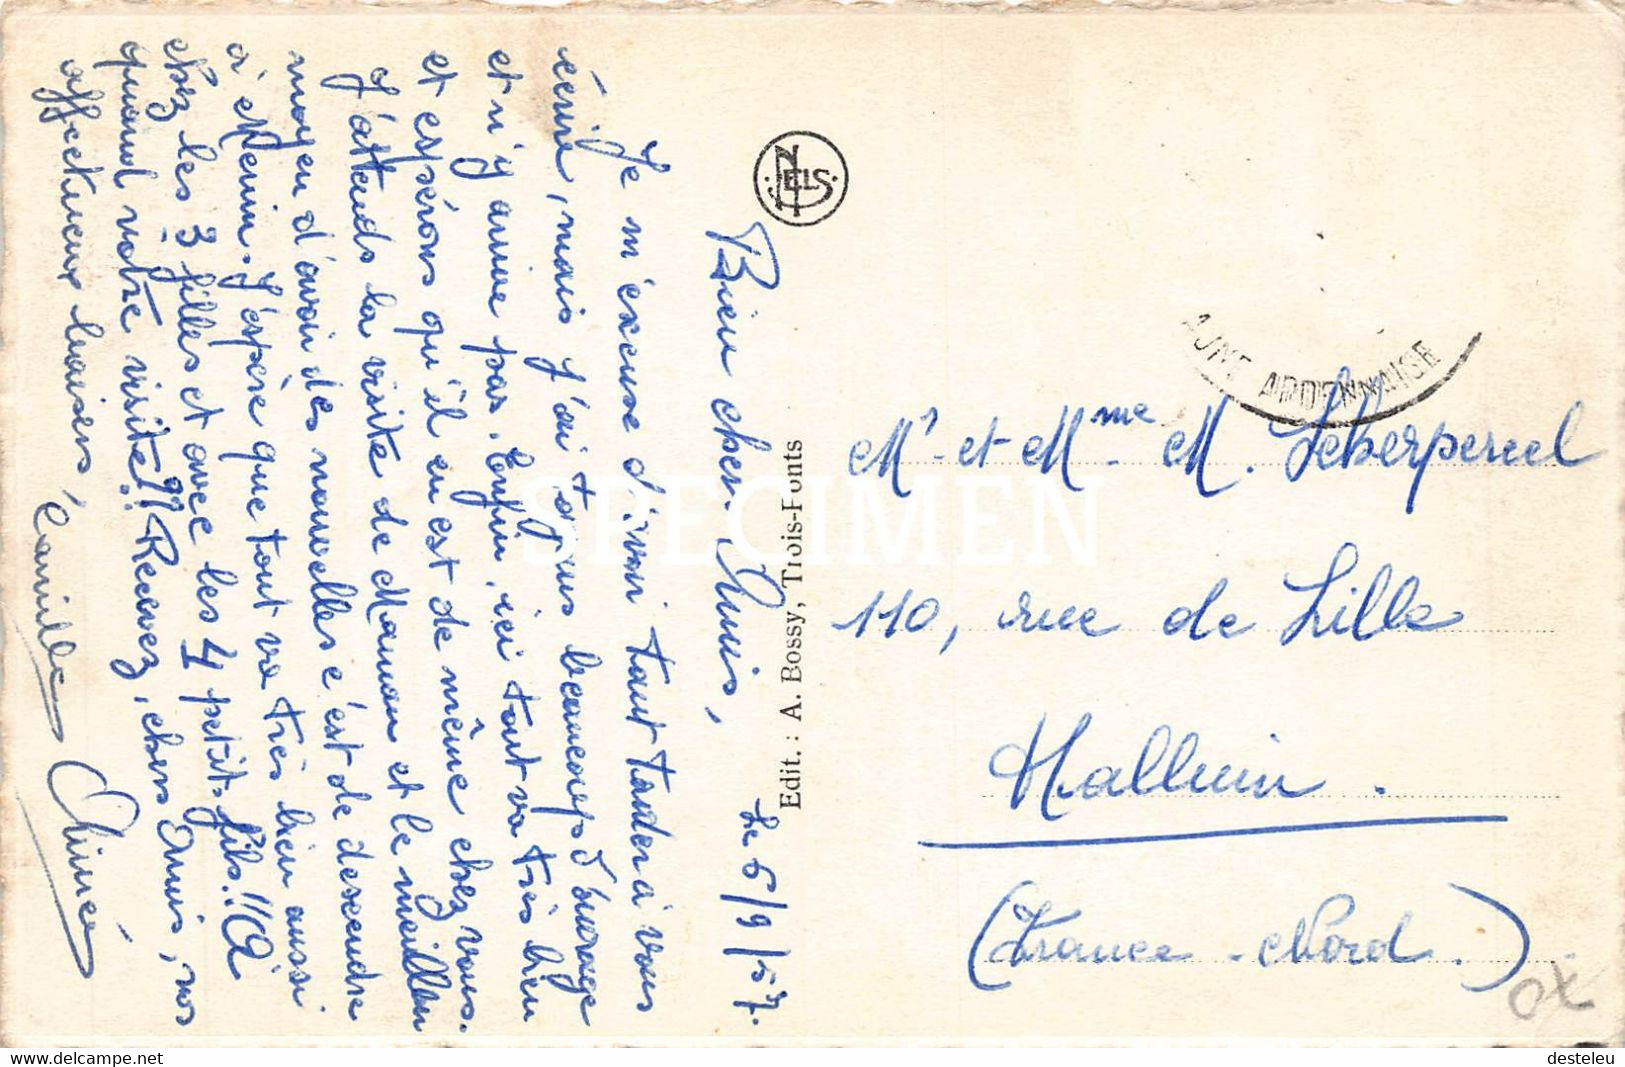 Le 6/9/57.
Bien chers Amis,
Je m'excuse d'avoir tant tarder à vous
écrire, mais j'ai toujours beaucoup d'ouvrage
et n'y arrive pas. Enfin, ici tout va très bien
et espérons qu'il en est de même chez vous.
J'attends la visite de Maman et le meilleur
moyen d'avoir des nouvelles c'est de descendre
à Menin. J'espère que tout va très bien aussi
chez les 3 filles et avec les 4 petits fils!! A
quand votre visite?? Recevez, chers Amis, nos
affectueux baisers,
Camille Aimée
NELS
Edit. : A. Bossy, Trois-Ponts
ARDENNAISE
Mr et Mme M.
110, rue de Lille
Halluin.
(France - Nord.)
SPECIMEN
desteleu